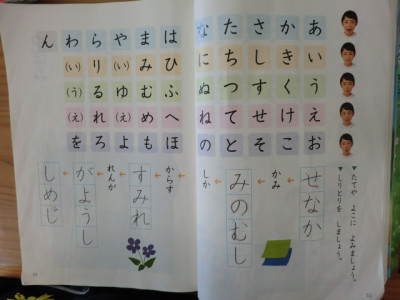 あいうえお
かきくけこ
さしすせそ
たちつてと
なにぬねの
はひふへほ
まみむめも
や(い)ゆ(え)よ
らりるれろ
わ(い)(う)(え)を
ん
▼たてや よこに よみましょう。
▼しりとりを しましょう。
せなか
かみ
みのむし
しか
からす
すみれ
れんが
がようし
しめじ